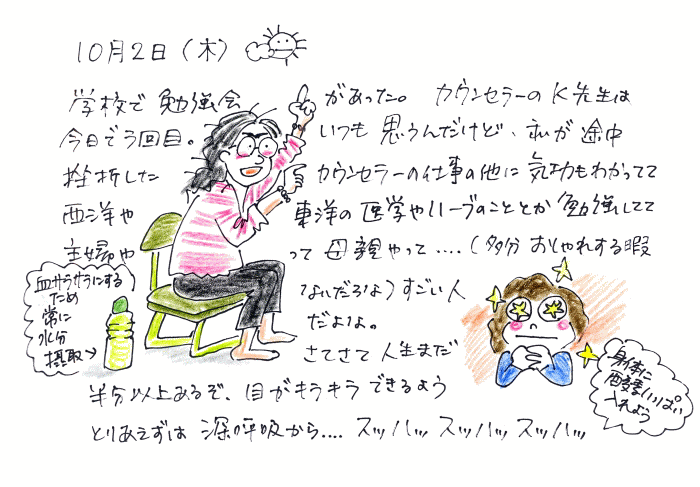 10月2日（木）
学校で 勉強会 があった。 カウンセラーの K先生は
今日で5回目。 いつも 思うんだけど、私が 途中
挫折した カウンセラーの仕事の他に 気功もわかってて
西洋や 東洋の 医学やハーブのこととか 勉強してて
主婦や って 母親やって....（多分 おしゃれする暇
ないだろな）すごい人
だよな。
さてさて 人生まだ
半分以上あるぞ、目がキラキラ できるよう
とりあえずは 深呼吸から.... スッハッ スッハッ スッハッ
血サラサラにする
ため
常に
水分
摂取→
身体に
酸素いっぱい
入れよう